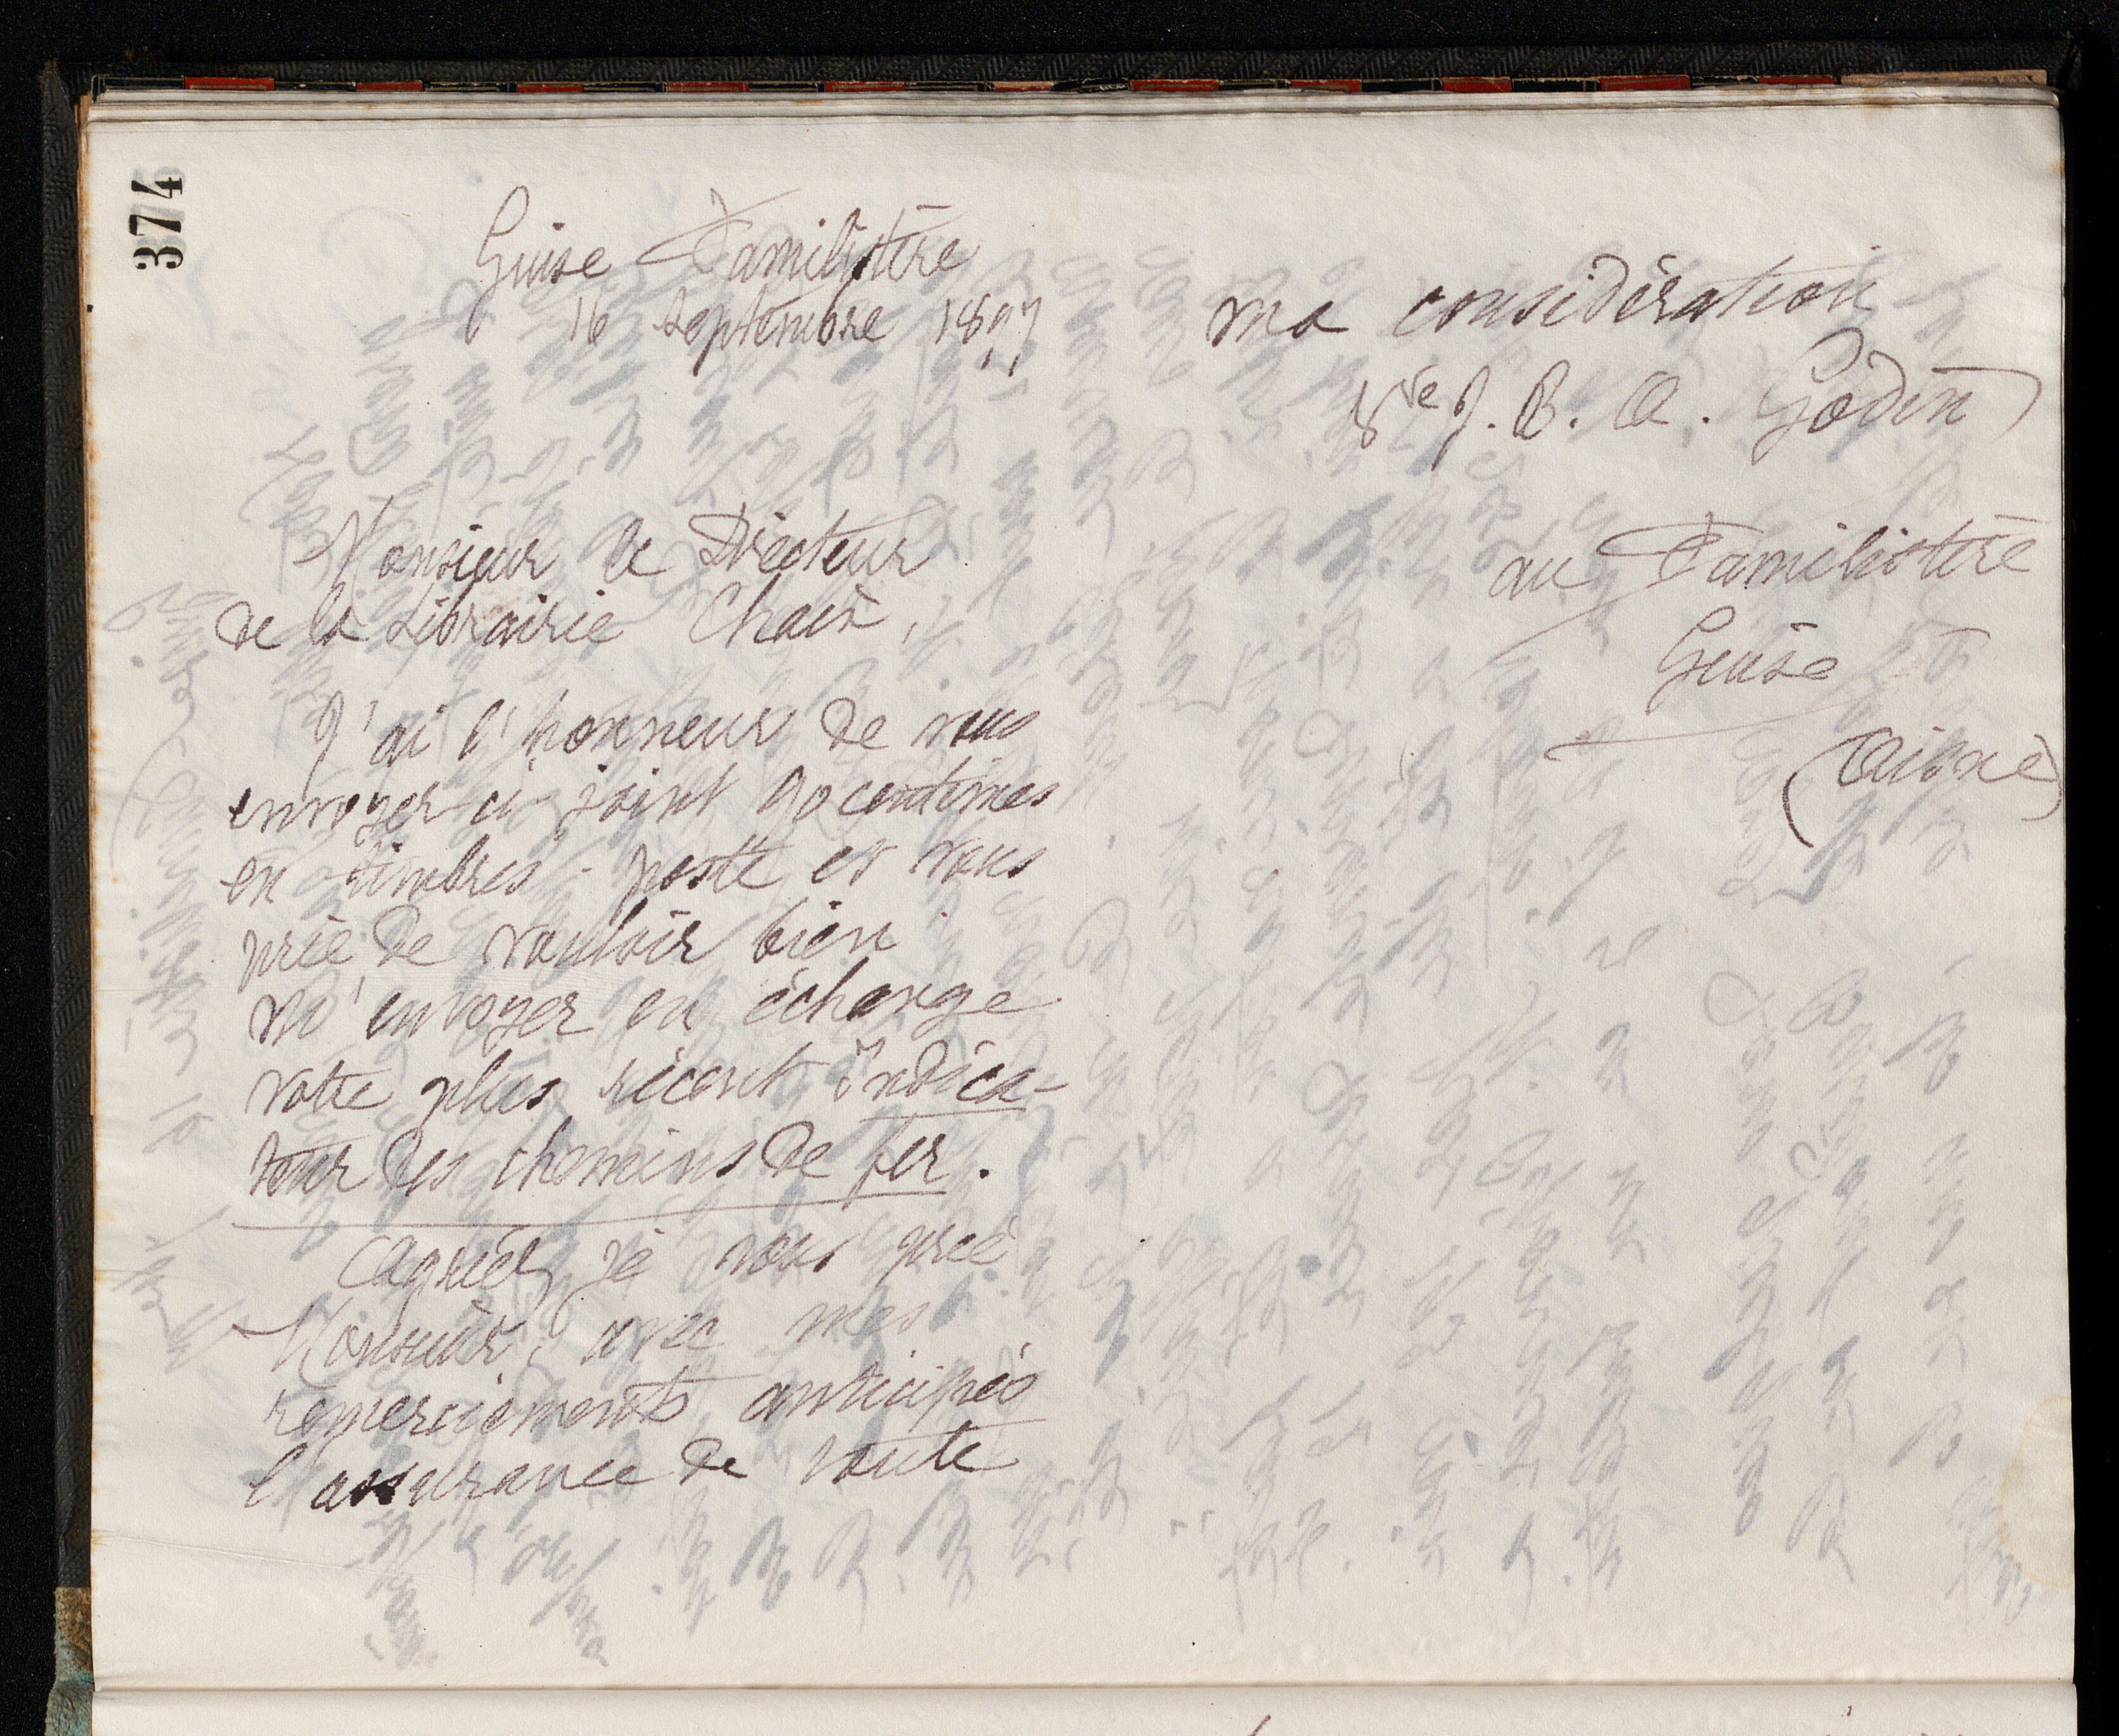 374
Guise Familistère
16 septembre 1897
Monsieur le Directeur
de la Librairie Chaix,
J'ai l'honneur de vous
envoyer ci-joint 90 centimes
en timbres-poste et vous
prie de vouloir bien
m'envoyer en échange
votre plus récent Indica-
teur des chemins de fer.
Agréez je vous prie
Monsieur, avec mes
remerciements anticipés
l'assurance de toute
ma considération
Vve J. B. A. Godin
au Familistère
Guise
(Aisne)